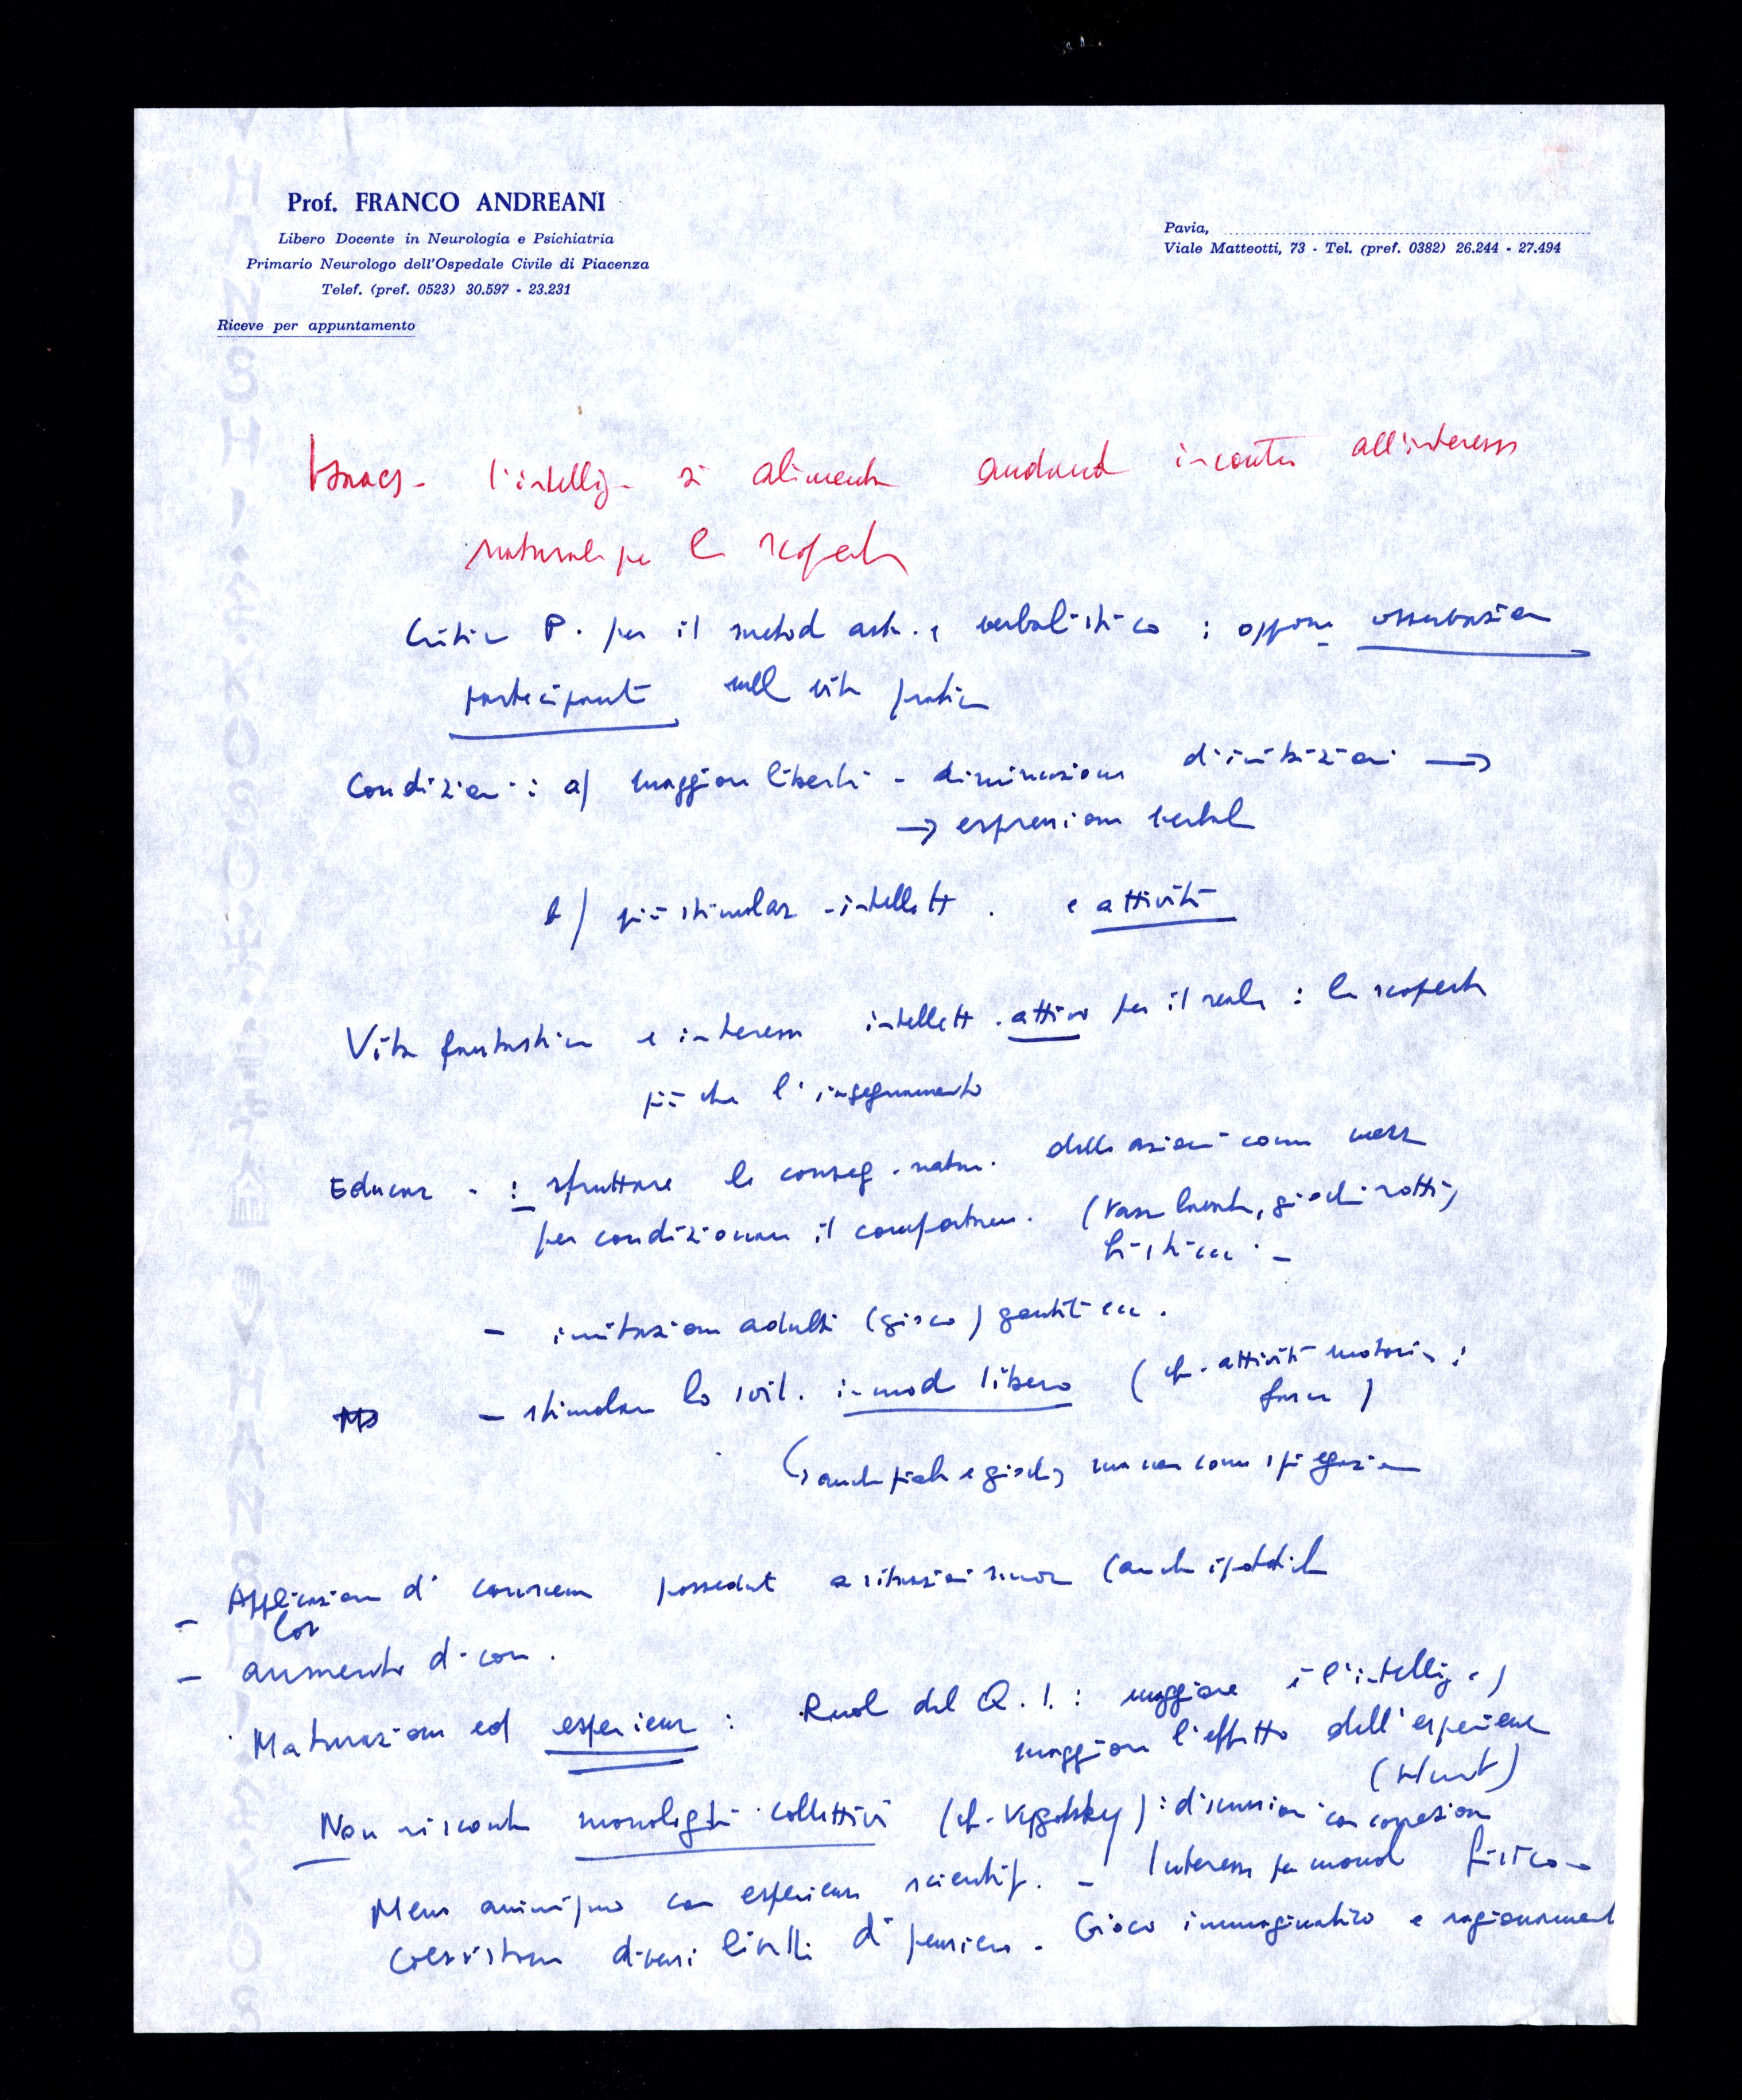 Prof. FRANCO ANDREANI
Libero Docente in Neurologia e Psichiatria
Primario Neurologo dell'Ospedale Civile di Piacenza
Telef. (pref. 0523) 30.597 - 23.231
Riceve per appuntamento
Pavia,
Viale Matteotti, 73 - Tel. (pref. 0382) 26.244 - 27.494
Isaacs - l'intellig - si alimenta andando incontro all'interesse
naturale per la scoperta
Critica P. per il metodo astr. e verbalistico : oppone osservazione
partecipante nella vita pratica
Condizioni : a) maggiore libertà - diminuzione d'inibizioni →
→ espressione verbale
b) più stimolaz - intellett . e attività
Vita fantastica e interesse intellett . attivo per il reale : la scoperta
più che l'insegnamento
Educaz - : sfruttare le conseg . natur . delle azioni come mezzo
per condizionare il comportam . ( giochi rotti,
- imitazione adulti (gioco) ecc .
- stimolare lo svil . in modo libero ( cf - attività motoria :
anche e giochi, ma non come spiegazione
- Applicazione di conoscenze possedute a situazioni nuove (anche ipotetiche
- aumento di con .
Maturazione ed esperienza : Ruolo del Q . I . : maggiore è l'intellig . ,
maggiore l'effetto dell'esperienza
(Hunt)
Non riscontra monologhi collettivi (cf - Vygotsky) : discussioni con
Meno animismo con esperienza scientif . - Interesse per mondo fisico -
Coesistono diversi livelli di pensiero - Gioco immaginativo e ragionamento